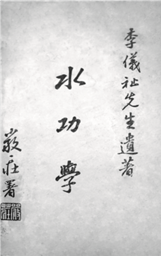 李儀祉先生遺著
水功學
嚴莊署